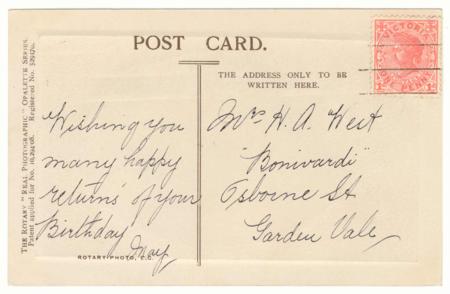 POST CARD.
VICTORIA
ONE PENNY
THE ADDRESS ONLY TO BE
WRITTEN HERE.
THE ROTARY "REAL PHOTOGRAPHIC" OPALETTE SERIES.
Patent applied for No. 16,294/08. Registered No.
Wishing you
many happy
returns of your
Birthday
May
Mrs H. A. West
"Bonivardi"
Osborne St
Garden Vale
ROTARY PHOTO, E.C.